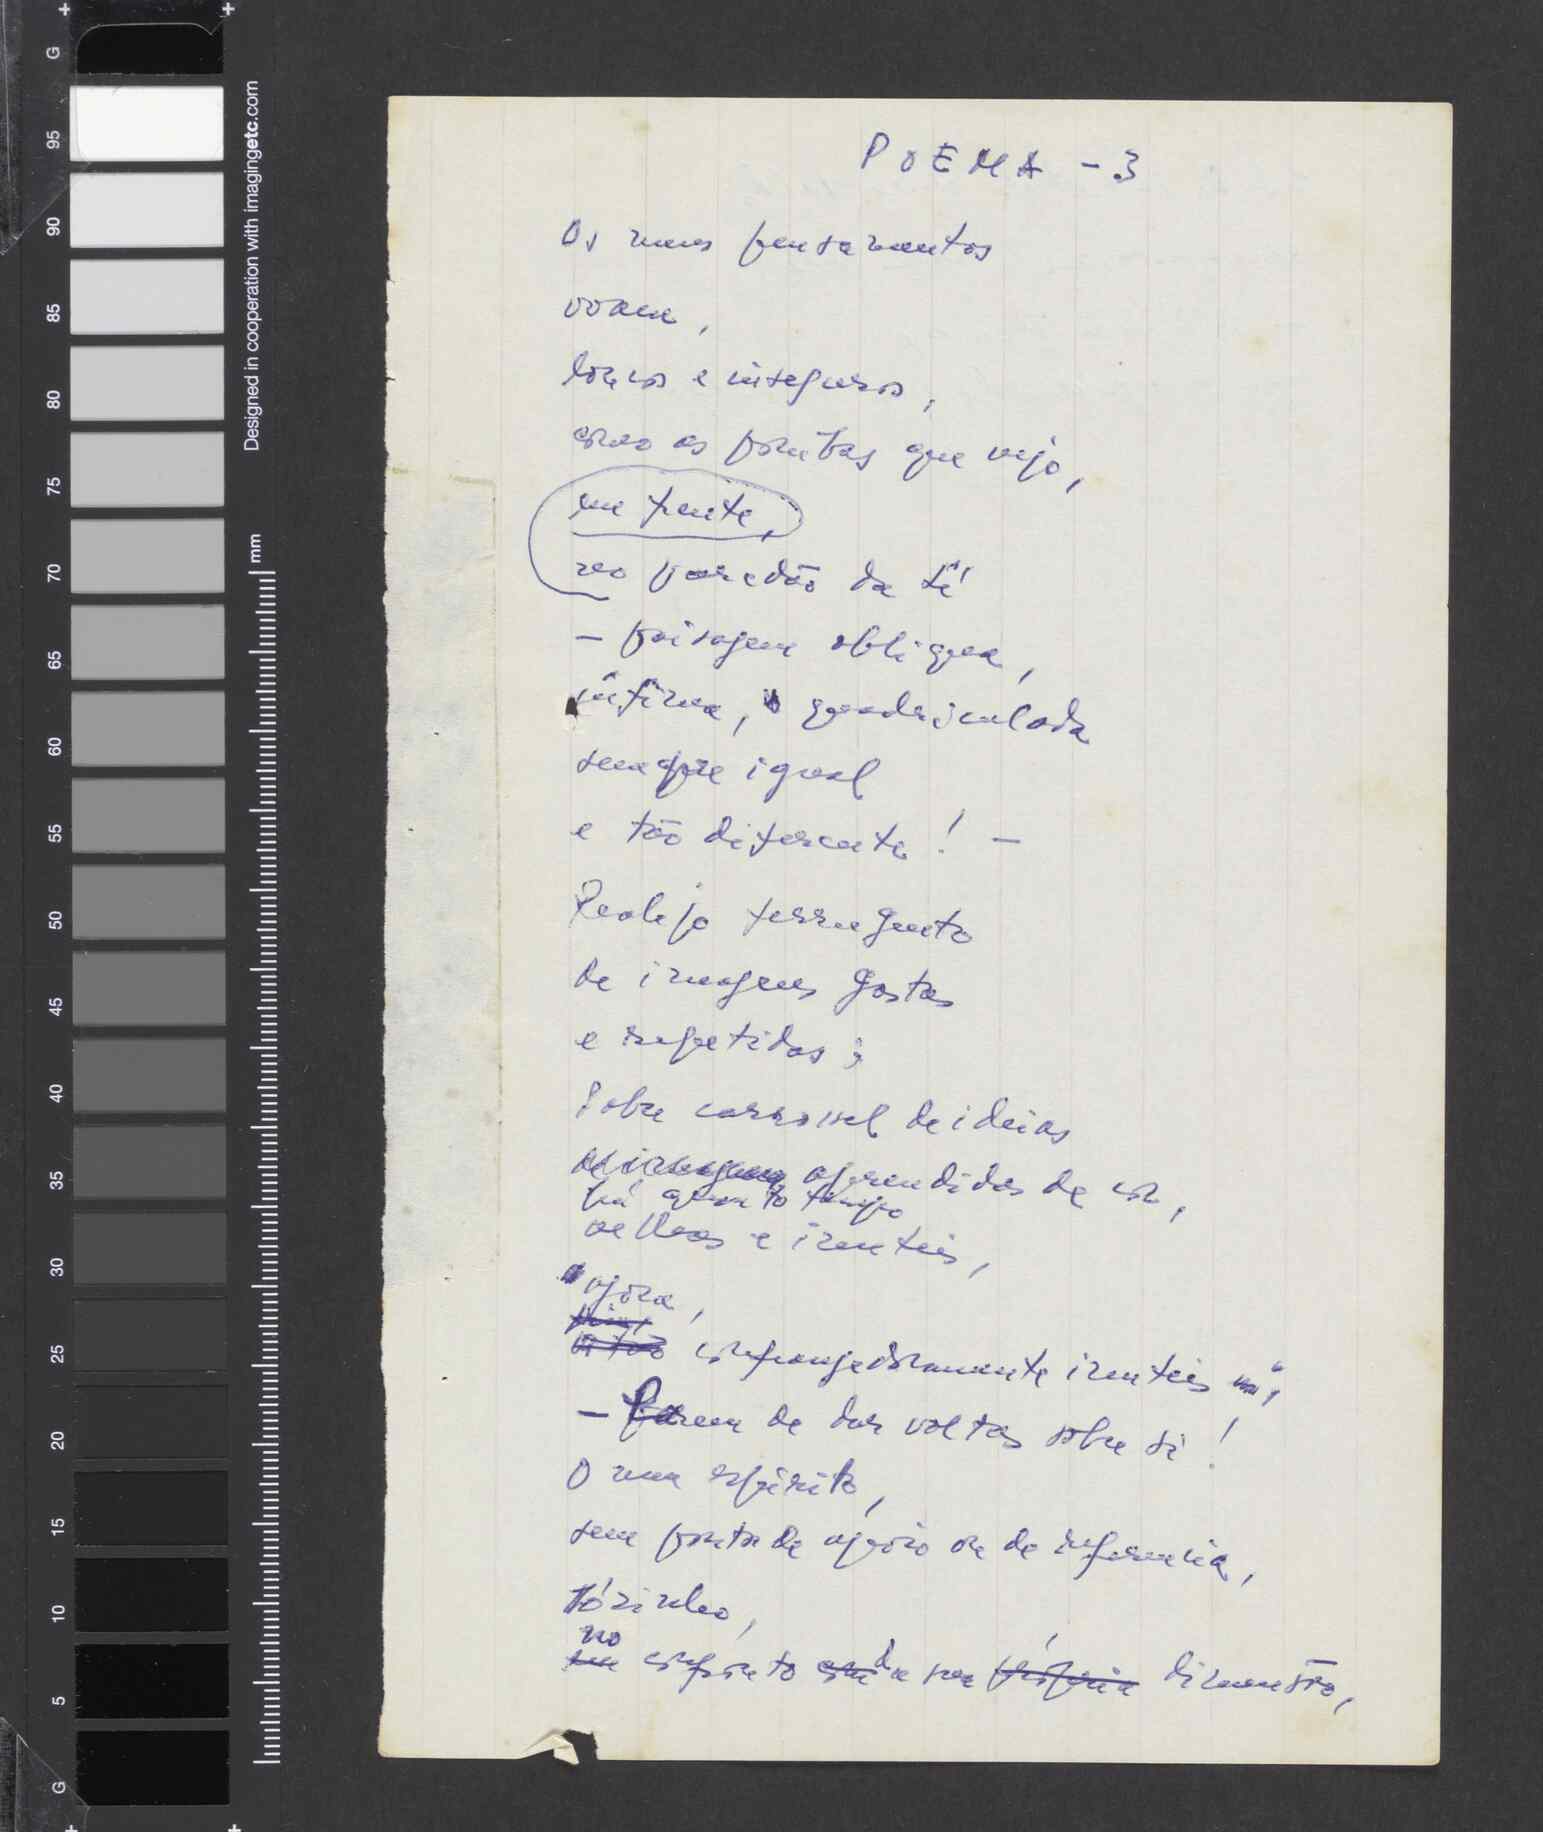 G
95
90
85
80
75
70
65
60
55
50
45
40
35
30
25
20
15
10
5
G
Designed in cooperation with imagingetc.com
mm
POEMA - 3
Os meus pensamentos
voam,
loucos e inseguros,
como as pombas que vejo,
em frente,
no paredão da Sé
- paisagem obliqua,
íntima, quadriculada
sempre igual
e tão diferente! -
Realejo ferrugento
de imagens gastas
e repetidas;
Sobre carrossel de ideias
de imagens aprendidas de cor,
há quanto tempo
velhas e inuteis,
agora,
então confrangedoramente inuteis
- Parem de dar voltas sobre si!
O meu espírito,
sem ponto de apoio ou de referencia,
sózinho,
no
em confronto da sua própria dimensão,